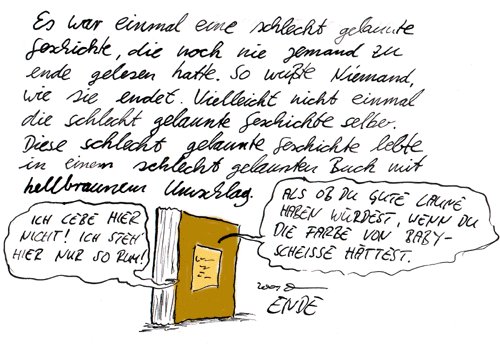 Es war einmal eine schlecht gelaunte
Geschichte, die noch nie jemand zu
ende gelesen hatte. So wußte Niemand,
wie sie endet. Vielleicht nicht einmal
die schlecht gelaunte Geschichte selber.
Diese schlecht gelaunte Geschichte lebte
in einem schlecht gelaunten Buch mit
hellbraunem Umschlag.
ICH LEBE HIER
NICHT! ICH STEH
HIER NUR SO RUM!
ALS OB DU GUTE LAUNE
HABEN WÜRDEST, WENN DU
DIE FARBE VON BABY-
SCHEISSE HÄTTEST.
ENDE